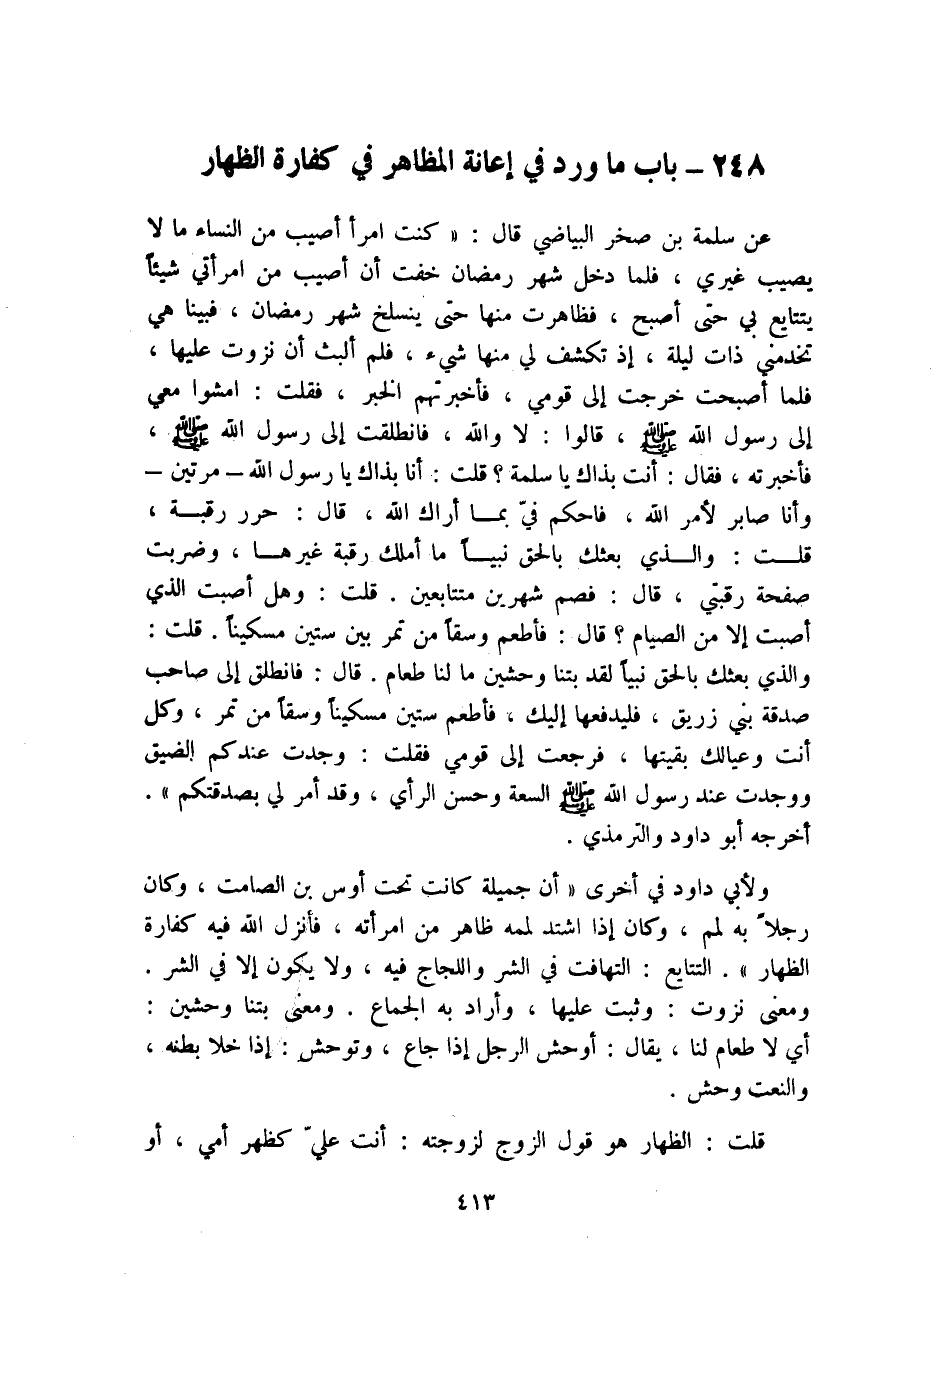 ٢٤٨ – باب ما ورد في إعانة المظاهر في كفارة الظهار
عن سلمة بن صخر البياضي قال : « كنت امرأ أصيب من النساء ما لا
يصيب غيري ، فلما دخل شهر رمضان خفت أن أصيب من امرأتي شيئاً
يتتايع بي حتى أصبح ، فظاهرت منها حتى ينسلخ شهر رمضان ، فبينا هي
تخدمني ذات ليلة ، إذ تكشف لي منها شيء ، فلم ألبث أن نزوت عليها ،
فلما أصبحت خرجت إلى قومي ، فأخبرتهم الخبر ، فقلت : امشوا معي
إلى رسول الله ﷺ ، قالوا : لا والله ، فانطلقت إلى رسول الله ﷺ ،
فأخبرته ، فقال : أنت بذاك يا سلمة ؟ قلت : أنا بذاك يا رسول الله – مرتين –
وأنا صابر لأمر الله ، فاحكم فيّ بمـا أراك الله ، قال : حرر رقبـة ،
قلـت : والـذي بعثك بالحق نبيـاً ما أملك رقبة غيرهـا ، وضربت
صفحة رقبتي ، قال : فصم شهرين متتابعين . قلت : وهل أصبت الذي
أصبت إلا من الصيام ؟ قال : فأطعم وسقاً من تمر بين ستين مسكيناً . قلت :
والذي بعثك بالحق نبياً لقد بتنا وحشين ما لنا طعام . قال : فانطلق إلى صاحب
صدقة بني زريق ، فليدفعها إليك ، فأطعم ستين مسكيناً وسقاً من تمر ، وكل
أنت وعيالك بقيتها ، فرجعت إلى قومي فقلت : وجدت عندكم الضيق
ووجدت عند رسول الله ﷺ السعة وحسن الرأي ، وقد أمر لي بصدقتكم » .
أخرجه أبو داود والترمذي .
ولأبي داود في أخرى « أن جميلة كانت تحت أوس بن الصامت ، وكان
رجلاً به لمم ، وكان إذا اشتد لممه ظاهر من امرأته ، فأنزل الله فيه كفارة
الظهار » . التتايع : التهافت في الشر واللجاج فيه ، ولا يكون إلا في الشر .
ومعنى نزوت : وثبت عليها ، وأراد به الجماع . ومعنى بتنا وحشين :
أي لا طعام لنا ، يقال : أوحش الرجل إذا جاع ، وتوحش : إذا خلا بطنه ،
والنعت وحش .
قلت : الظهار هو قول الزوج لزوجته : أنت عليّ كظهر أمي ، أو
٤١٣